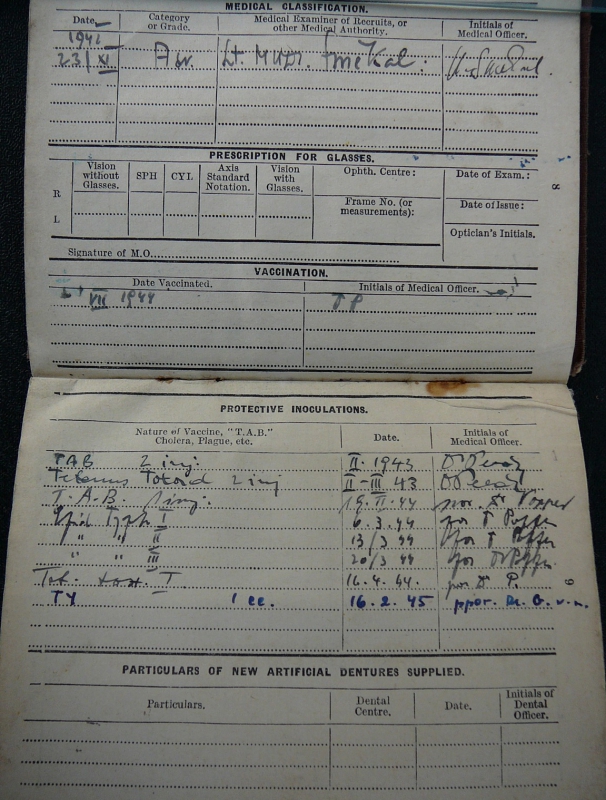 MEDICAL CLASSIFICATION.
Date Category or Grade. Medical Examiner of Recruits, or other Medical Authority. Initials of Medical Officer.
194
23/XI Lt.
PRESCRIPTION FOR GLASSES.
Vision without Glasses. SPH CYL Axis Standard Notation. Vision with Glasses. Ophth. Centre: Date of Exam.:
R
Frame No. (or measurements): Date of Issue:
L
Optician's Initials.
Signature of M.O.
8
VACCINATION.
Date Vaccinated. Initials of Medical Officer.
VII 1944
PROTECTIVE INOCULATIONS.
Nature of Vaccine, "T.A.B." Cholera, Plague, etc. Date. Initials of Medical Officer.
TAB 2 inj. II. 1943
Tetanus Toxoid 2 inj II-III 43
T.A.B. 1 inj. 19.II.44 por. Dr Popper
Epid. Typh. I 6.3.44 por Popper
" " II 13/3 44 por Popper
" " III 20/3 44 por Dr Popper
Tet. tox. I 16.4.44. por. Dr. P.
TY 1 cc. 16.2.45 ppor. Dr.
9
PARTICULARS OF NEW ARTIFICIAL DENTURES SUPPLIED.
Particulars. Dental Centre. Date. Initials of Dental Officer.